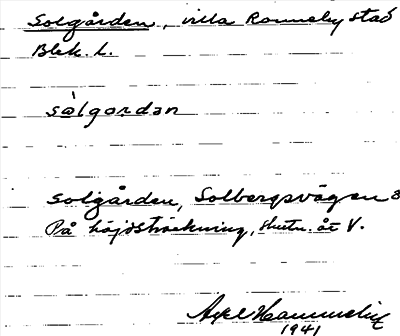 Solgården, villa Ronneby stad
Blek. l.
sòlgordan
Solgården, Solbergsvägen 3
På höjdsträckning, slutn. åt V.
Axel Hammelin
1941